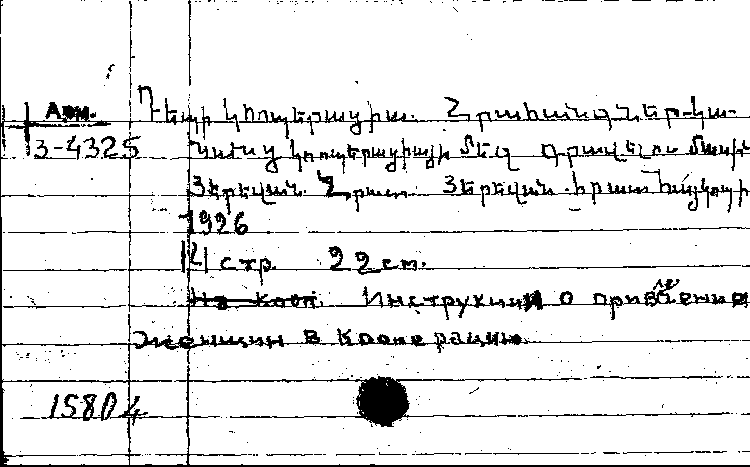 Арм.
3-4325
Դեպի կոոպերացիա. Հրահանգներ կա-
նանց կոոպերացիայի մեջ գրավելու մասին
Յերեվան. Հրատ. Յերեվան
1926
12 стр. 22 см.
На кооп. Инструкции о привлечение
женщин в кооперацию.
15804